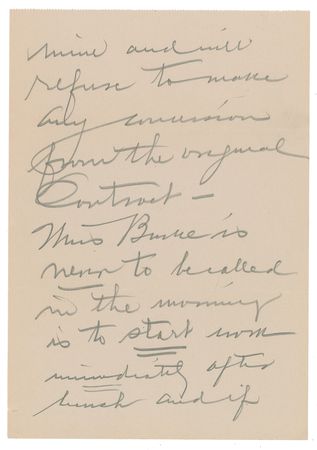 mine and will
refuse to make
any concession
from the original
Contract -
Miss Burke is
never to be called
in the morning
is to start work
immediately after
lunch and if